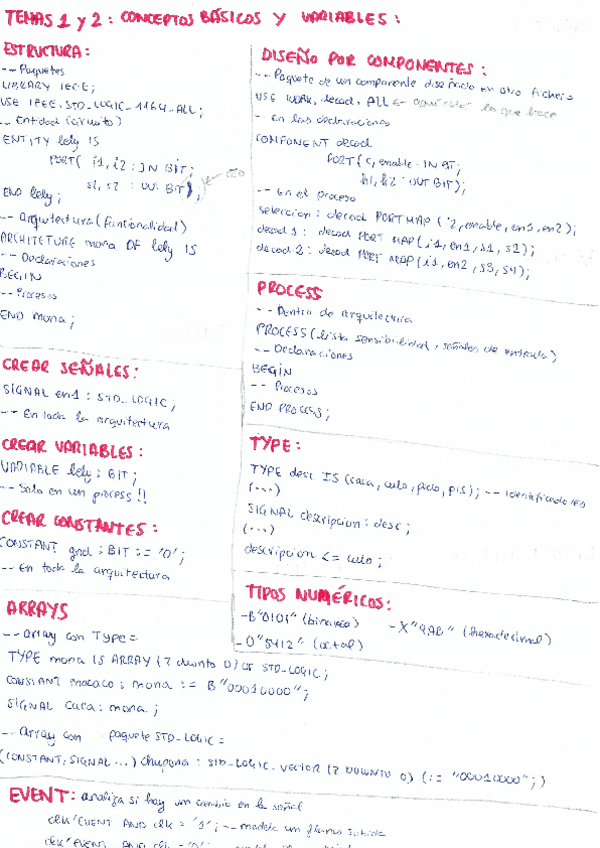 TEMAS 1 y 2 : CONCEPTOS BÁSICOS Y VARIABLES :
ESTRUCTURA :
-- Paquetes
LIBRARY IEEE;
USE IEEE.STD_LOGIC_1164.ALL;
-- Entidad (circuito)
ENTITY lely IS
PORT( i1, i2 : IN BIT;
s1, s2 : OUT BIT);
END lely ;
-- Arquitectura (funcionalidad)
ARCHITETURE mona OF lely IS
-- Declaraciones
BEGIN
-- Procesos
END mona ;
CREAR SEÑALES :
SIGNAL en1 : STD_LOGIC ;
-- En toda la arquitectura
CREAR VARIABLES :
VARIABLE lely : BIT ;
-- Solo en un process !!
CREAR CONSTANTES :
CONSTANT gnd : BIT := '0' ;
-- En toda la arquitectura
DISEÑO POR COMPONENTES :
-- Paquete de un componente diseñado en otro fichero
USE WORK.decod.ALL ← lo que hace
-- En las declaraciones
COMPONENT decod
PORT( c, enable : IN BIT;
: OUT BIT);
-- En el proceso
seleccion : decod PORT MAP ( i2, enable, en1, en2 );
decod 1 : decod PORT MAP ( i1, en1, s1, s2 );
decod 2 : decod PORT MAP ( i1, en2, s3, s4 );
PROCESS
-- Dentro de arquitectura
PROCESS ( lista sensibilidad, señales de entrada )
-- Declaraciones
BEGIN
-- Procesos
END PROCESS ;
TYPE :
TYPE desc IS (caca, culo, pedo, pis) ; -- identificadores
(...)
SIGNAL descripcion : desc ;
(...)
descripcion <= culo ;
TIPOS NUMÉRICOS :
- B"0101" (binario) - X"9AB" (hexadecimal)
- O"5412" (octal)
ARRAYS
-- array con TYPE =
TYPE mona IS ARRAY (7 dwnto 0) OF STD_LOGIC ;
CONSTANT macaco : mona := B"00010000" ;
SIGNAL cura : mona ;
-- Array con paquete STD_LOGIC =
(CONSTANT, SIGNAL ...) chupona : STD_LOGIC_VECTOR (7 DOWNTO 0) (:= "00010000" ; )
EVENT : analiza si hay un cambio en la señal
clk'EVENT AND clk = '1' ; -- modela un flanco subida
clk'EVENT AND clk = '0' ;